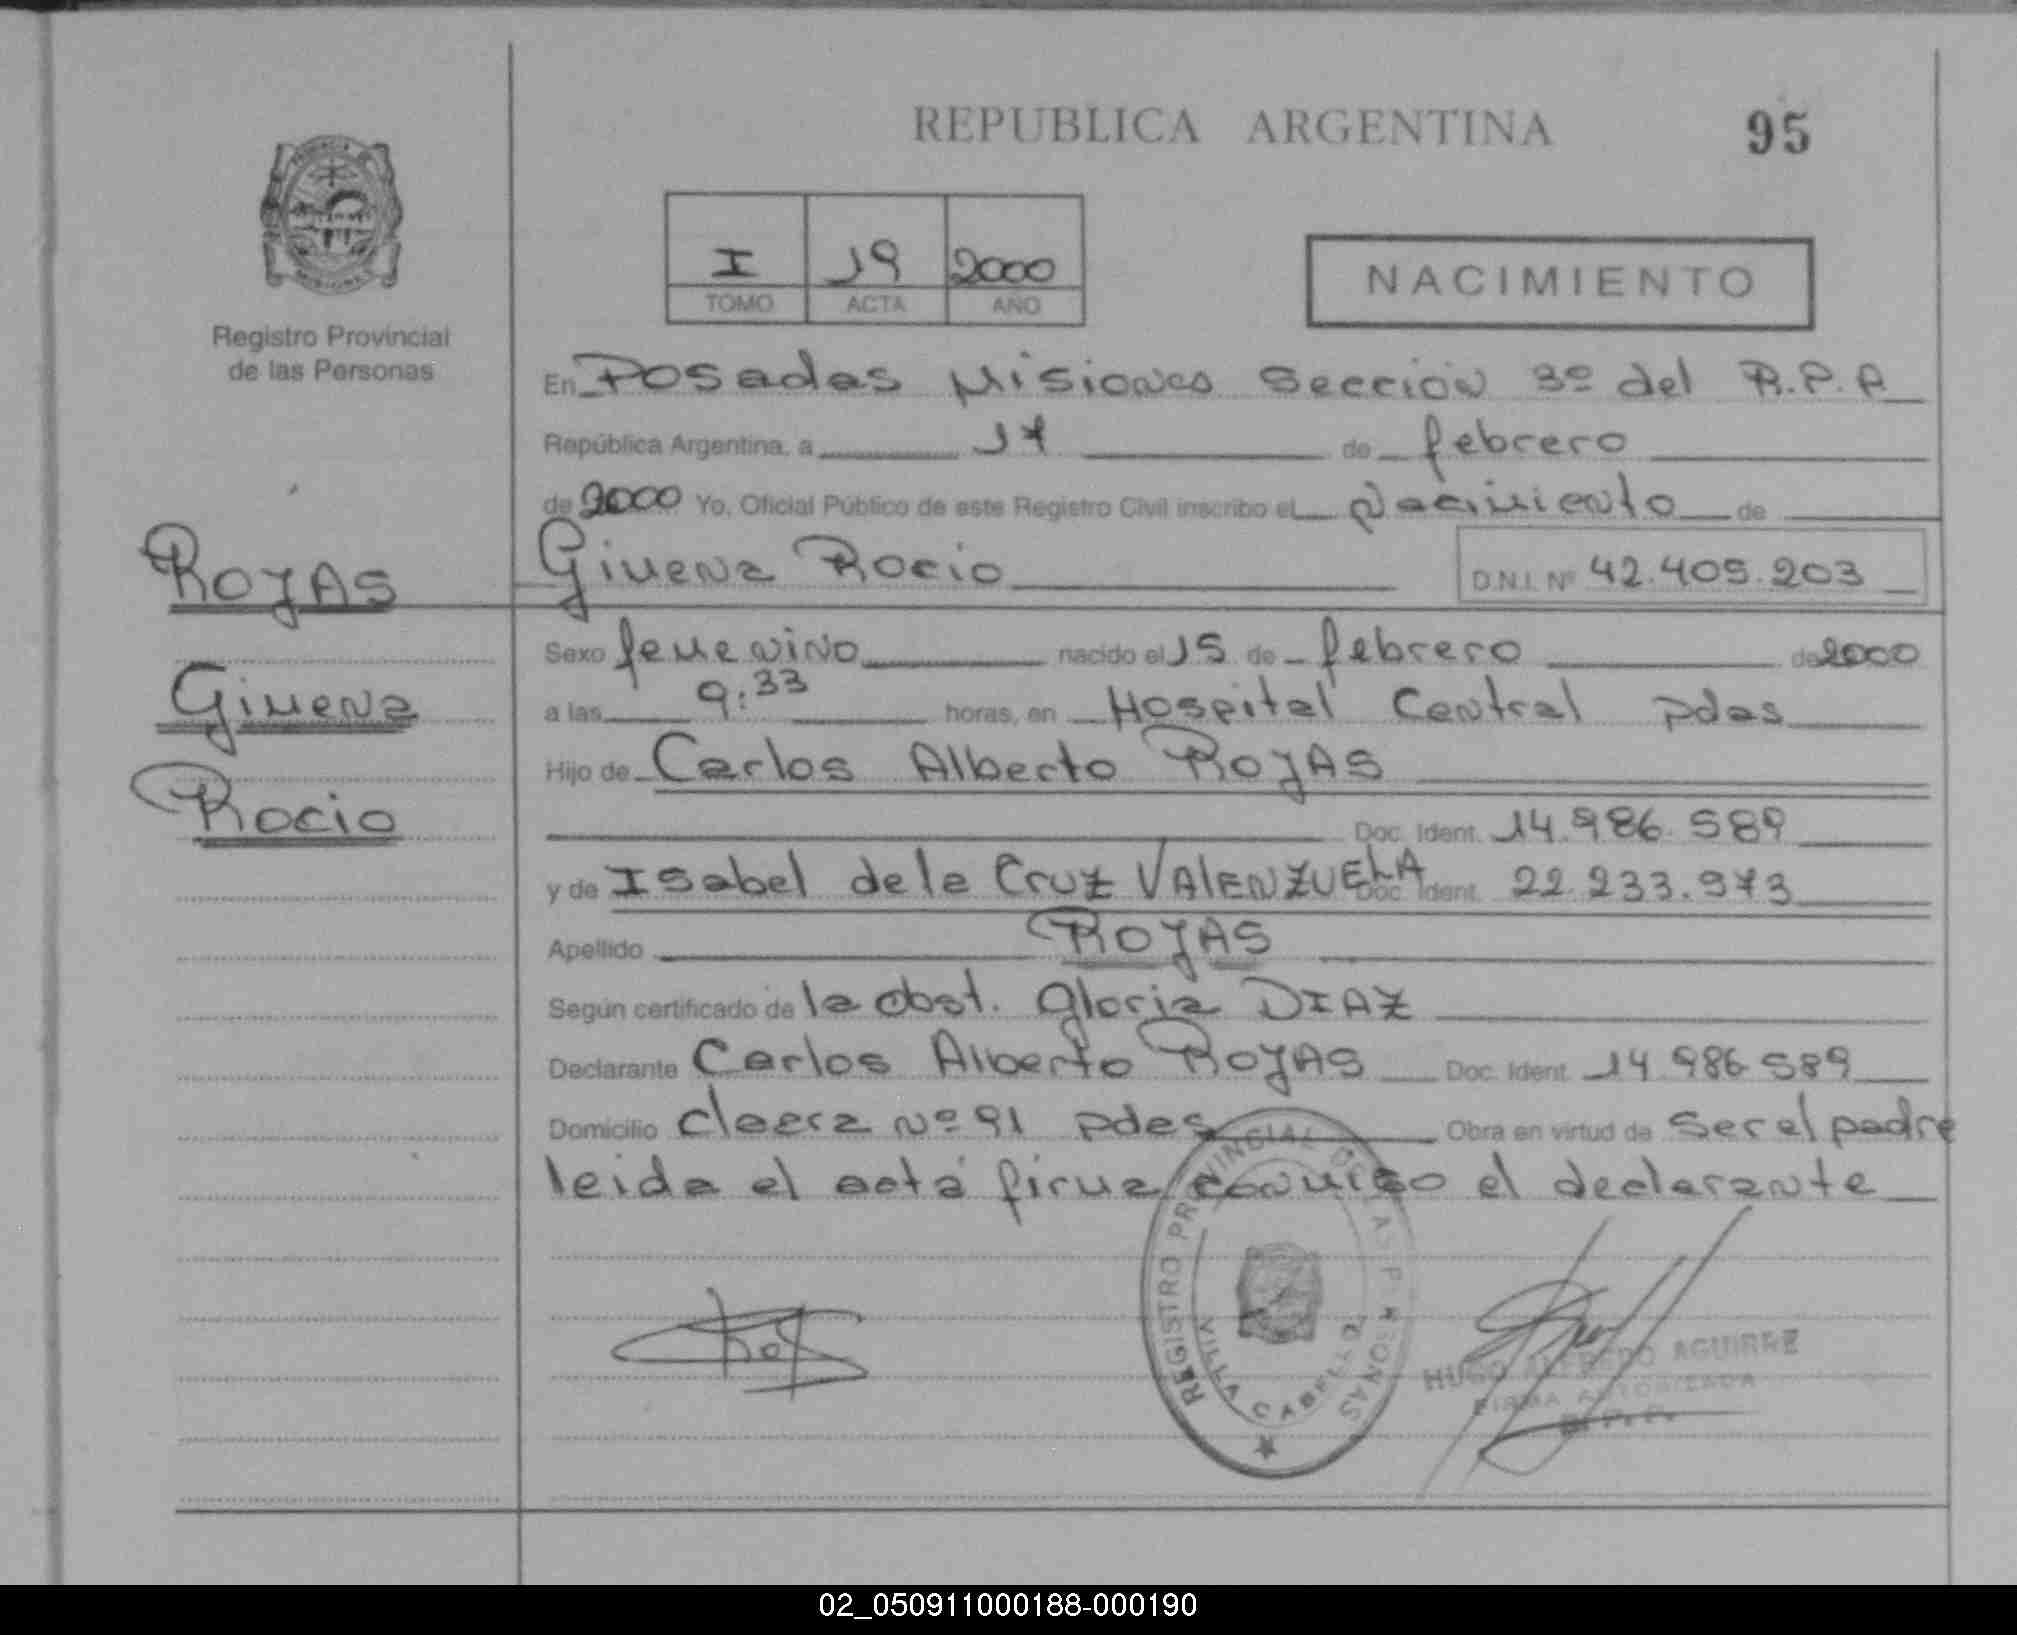 REPUBLICA ARGENTINA
95
Registro Provincial
de las Personas
I 19 2000
TOMO ACTA AÑO
NACIMIENTO
En Posadas Misiones Sección 3º del R.P.P
República Argentina, a 17 de febrero
de 2000 Yo, Oficial Público de este Registro Civil inscribo el Nacimiento de
Gimena Rocio D.N.I. Nº 42.409.203
ROJAS
Gimena
Rocio
Sexo femenino nacido el 15 de febrero de 2000
a las 9:33 horas, en Hospital Central pdas
Hijo de Carlos Alberto ROJAS
Doc. Ident. 14.986.589
y de Isabel de la Cruz VALENZUELA Doc. Ident. 22.233.973
Apellido ROJAS
Según certificado de la obst. Gloria DIAZ
Declarante Carlos Alberto ROJAS Doc. Ident. 14.986.589
Domicilio Nº 91 pdas Obra en virtud de ser el padre
leida el acta firma conmigo el declarante
REGISTRO PROVINCIAL DE LAS PERSONAS
VILLA CABELLO
HUGO ALFREDO AGUIRRE
FIRMA AUTORIZADA
R.P.P.
02_050911000188-000190